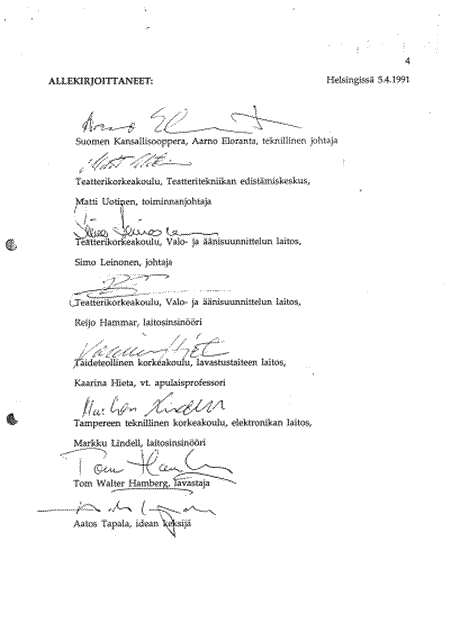 4
ALLEKIRJOITTANEET: Helsingissä 5.4.1991
Aarno El
Suomen Kansallisooppera, Aarno Eloranta, teknillinen johtaja
Teatterikorkeakoulu, Teatteritekniikan edistämiskeskus,
Matti Uotinen, toiminnanjohtaja
Teatterikorkeakoulu, Valo- ja äänisuunnittelun laitos,
Simo Leinonen, johtaja
Teatterikorkeakoulu, Valo- ja äänisuunnittelun laitos,
Reijo Hammar, laitosinsinööri
Taideteollinen korkeakoulu, lavastustaiteen laitos,
Kaarina Hieta, vt. apulaisprofessori
Markku Lindell
Tampereen teknillinen korkeakoulu, elektroniikan laitos,
Markku Lindell, laitosinsinööri
Tom Hamberg
Tom Walter Hamberg, lavastaja
Aatos Tapala, idean keksijä